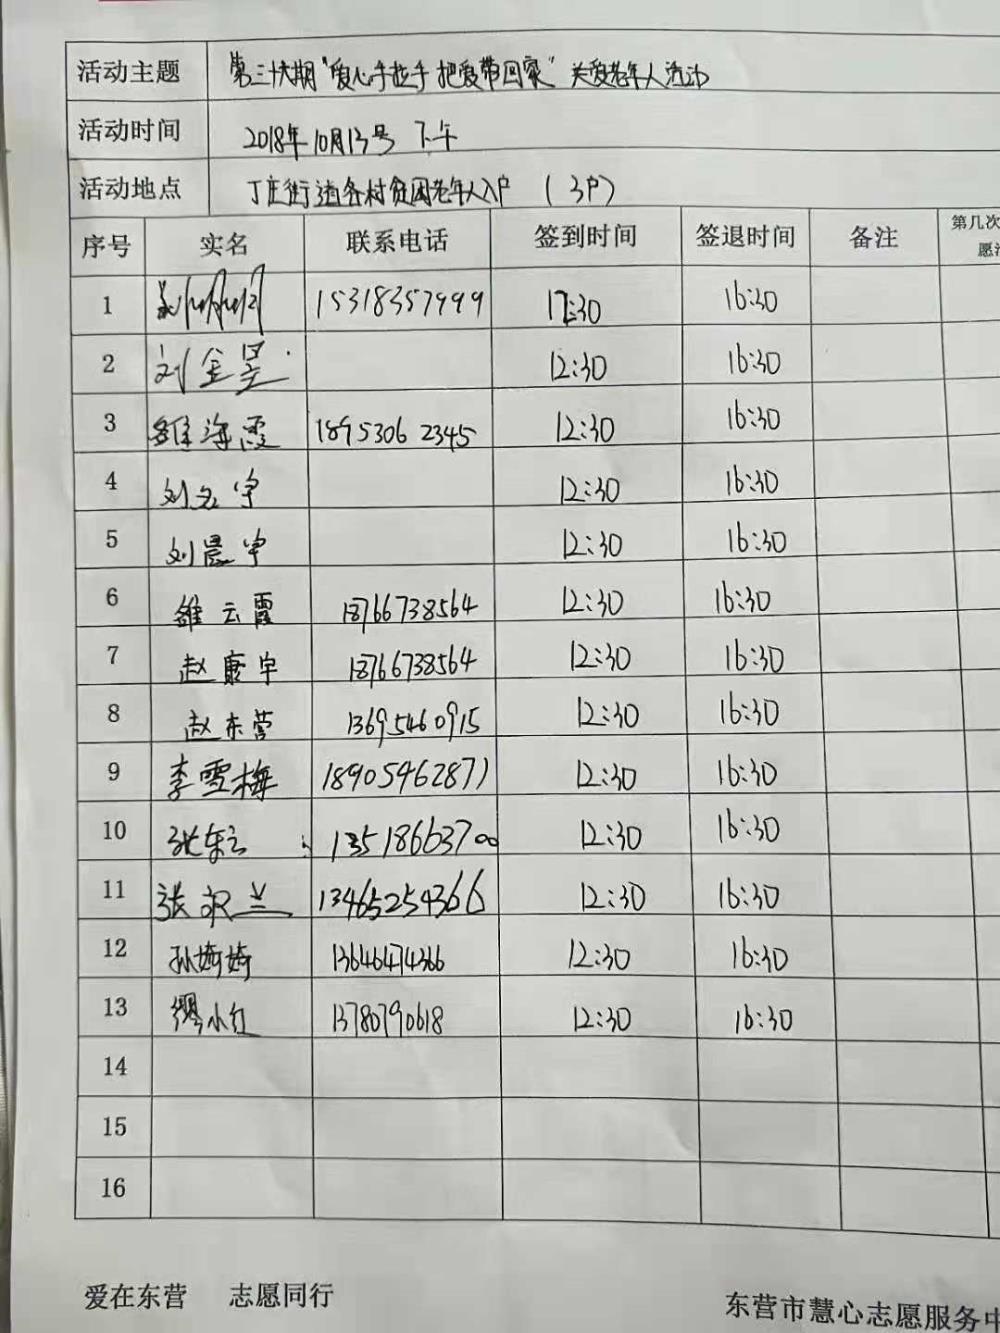 活动主题 第三十六期“爱心手拉手 把爱带回家”关爱老年人活动
活动时间 2018年10月13号 下午
活动地点 丁庄街道各村贫困老年人入户 (3户)
序号 实名 联系电话 签到时间 签退时间 备注 第几次
愿
1 15318357999 12:30 16:30
2 刘金昊 12:30 16:30
3 雒海霞 18953062345 12:30 16:30
4 刘文宇 12:30 16:30
5 刘晨宇 12:30 16:30
6 雒云霞 18766738564 12:30 16:30
7 赵康宇 18766738564 12:30 16:30
8 赵东营 13695460915 12:30 16:30
9 李雪梅 18905462871 12:30 16:30
10 张东云 13518663700 12:30 16:30
11 张兰 13465254366 12:30 16:30
12 孙婷婷 13646474366 12:30 16:30
13 缪小红 13780790618 12:30 16:30
14
15
16
爱在东营 志愿同行
东营市慧心志愿服务中